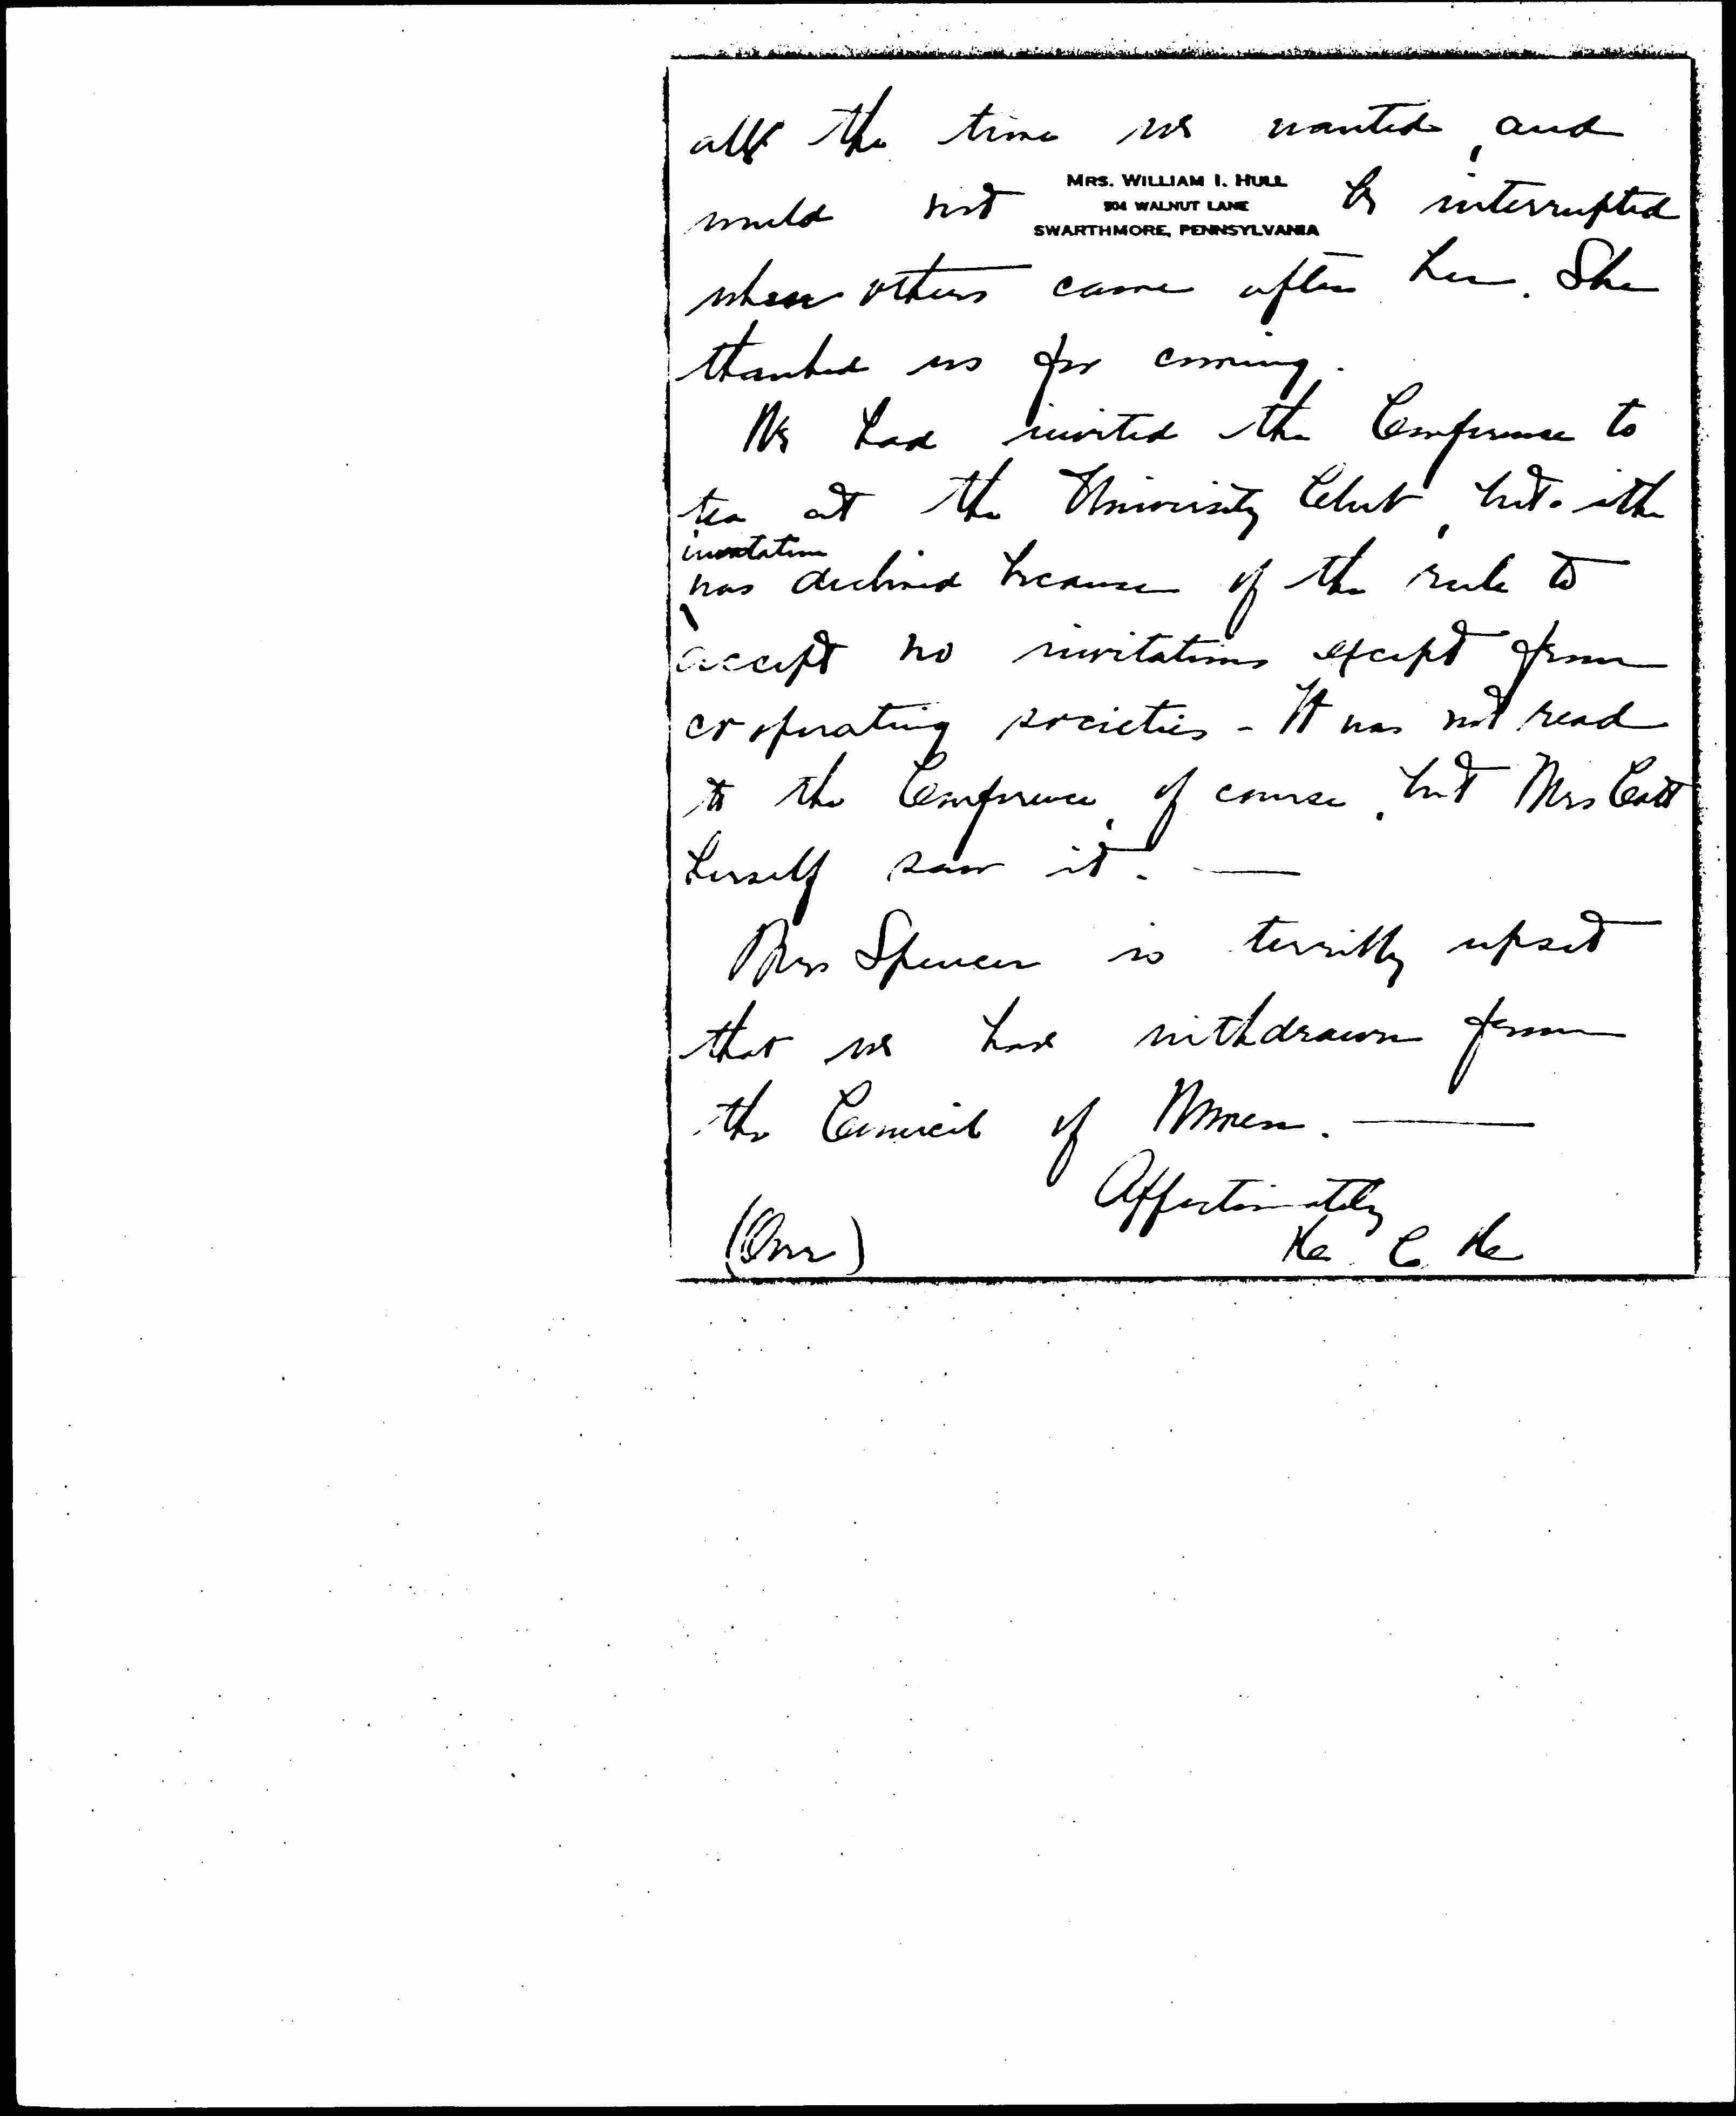 all the time we wanted, and
MRS. WILLIAM I. HULL
504 WALNUT LANE
SWARTHMORE, PENNSYLVANIA
would not be interrupted
when others came after her. She
thanked us for coming.
We had invited the Conference to
tea at the University Club, but the
invitation
was declined because of the rule to
accept no invitations except from
cooperating societies - It was not read
to the Conference, of course, but Mrs Catt
herself saw it. —
Mrs Spencer is terribly upset
that we have withdrawn from
the Council of Women. —
Affectionately
(Over) H C H